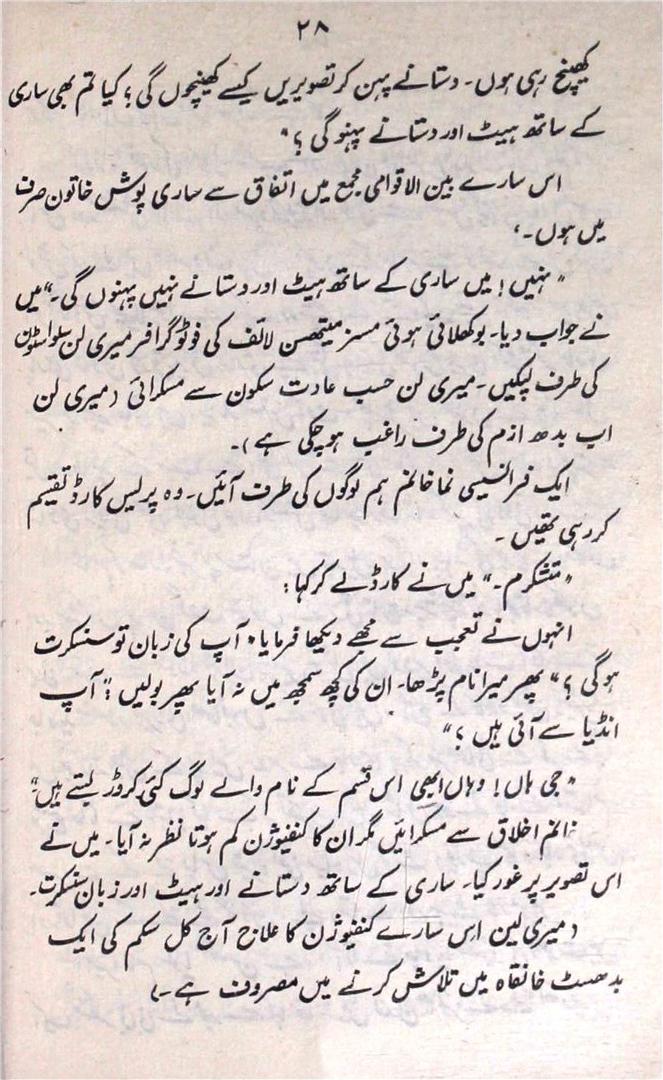 ۲۸
کھینچ رہی ہوں۔ دستانے پہن کر تصویریں کیسے کھینچوں گی؟ کیا تم بھی ساری
کے ساتھ ہیٹ اور دستانے پہنو گی؟"
اس سارے بین الاقوامی مجمع میں اتفاق سے ساری پوش خاتون صرف
میں ہوں۔،
"نہیں! میں ساری کے ساتھ ہیٹ اور دستانے نہیں پہنوں گی۔" میں
نے جواب دیا۔ بوکھلائی ہوئی مسز میتھسن لائف کی فوٹو گرافر میری لن سلواسٹون
کی طرف لپکیں۔ میری لن حسب عادت سکون سے مسکرائی (میری لن
اب بدھ ازم کی طرف راغب ہو چکی ہے)۔
ایک فرانسیسی نما خانم ہم لوگوں کی طرف آئیں۔ وہ پریس کارڈ تقسیم
کر رہی تھیں۔
"متشکرم۔" میں نے کارڈ لے کر کہا:
انہوں نے تعجب سے مجھے دیکھا فرمایا "آپ کی زبان تو سنسکرت
ہو گی؟" پھر میرا نام پڑھا۔ ان کی کچھ سمجھ میں نہ آیا پھر بولیں: "آپ
انڈیا سے آئی ہیں؟"
"جی ہاں! وہاں ابھی اس قسم کے نام والے لوگ کئی کروڑ بستے ہیں"
خانم اخلاق سے مسکرائیں مگر ان کا کنفیوژن کم ہوتا نظر نہ آیا۔ میں نے
اس تصویر پر غور کیا۔ ساری کے ساتھ دستانے اور ہیٹ اور زبان سنسکرت۔
(میری لین اس سارے کنفیوژن کا علاج آج کل سکم کی ایک
بدھسٹ خانقاہ میں تلاش کرنے میں مصروف ہے۔)